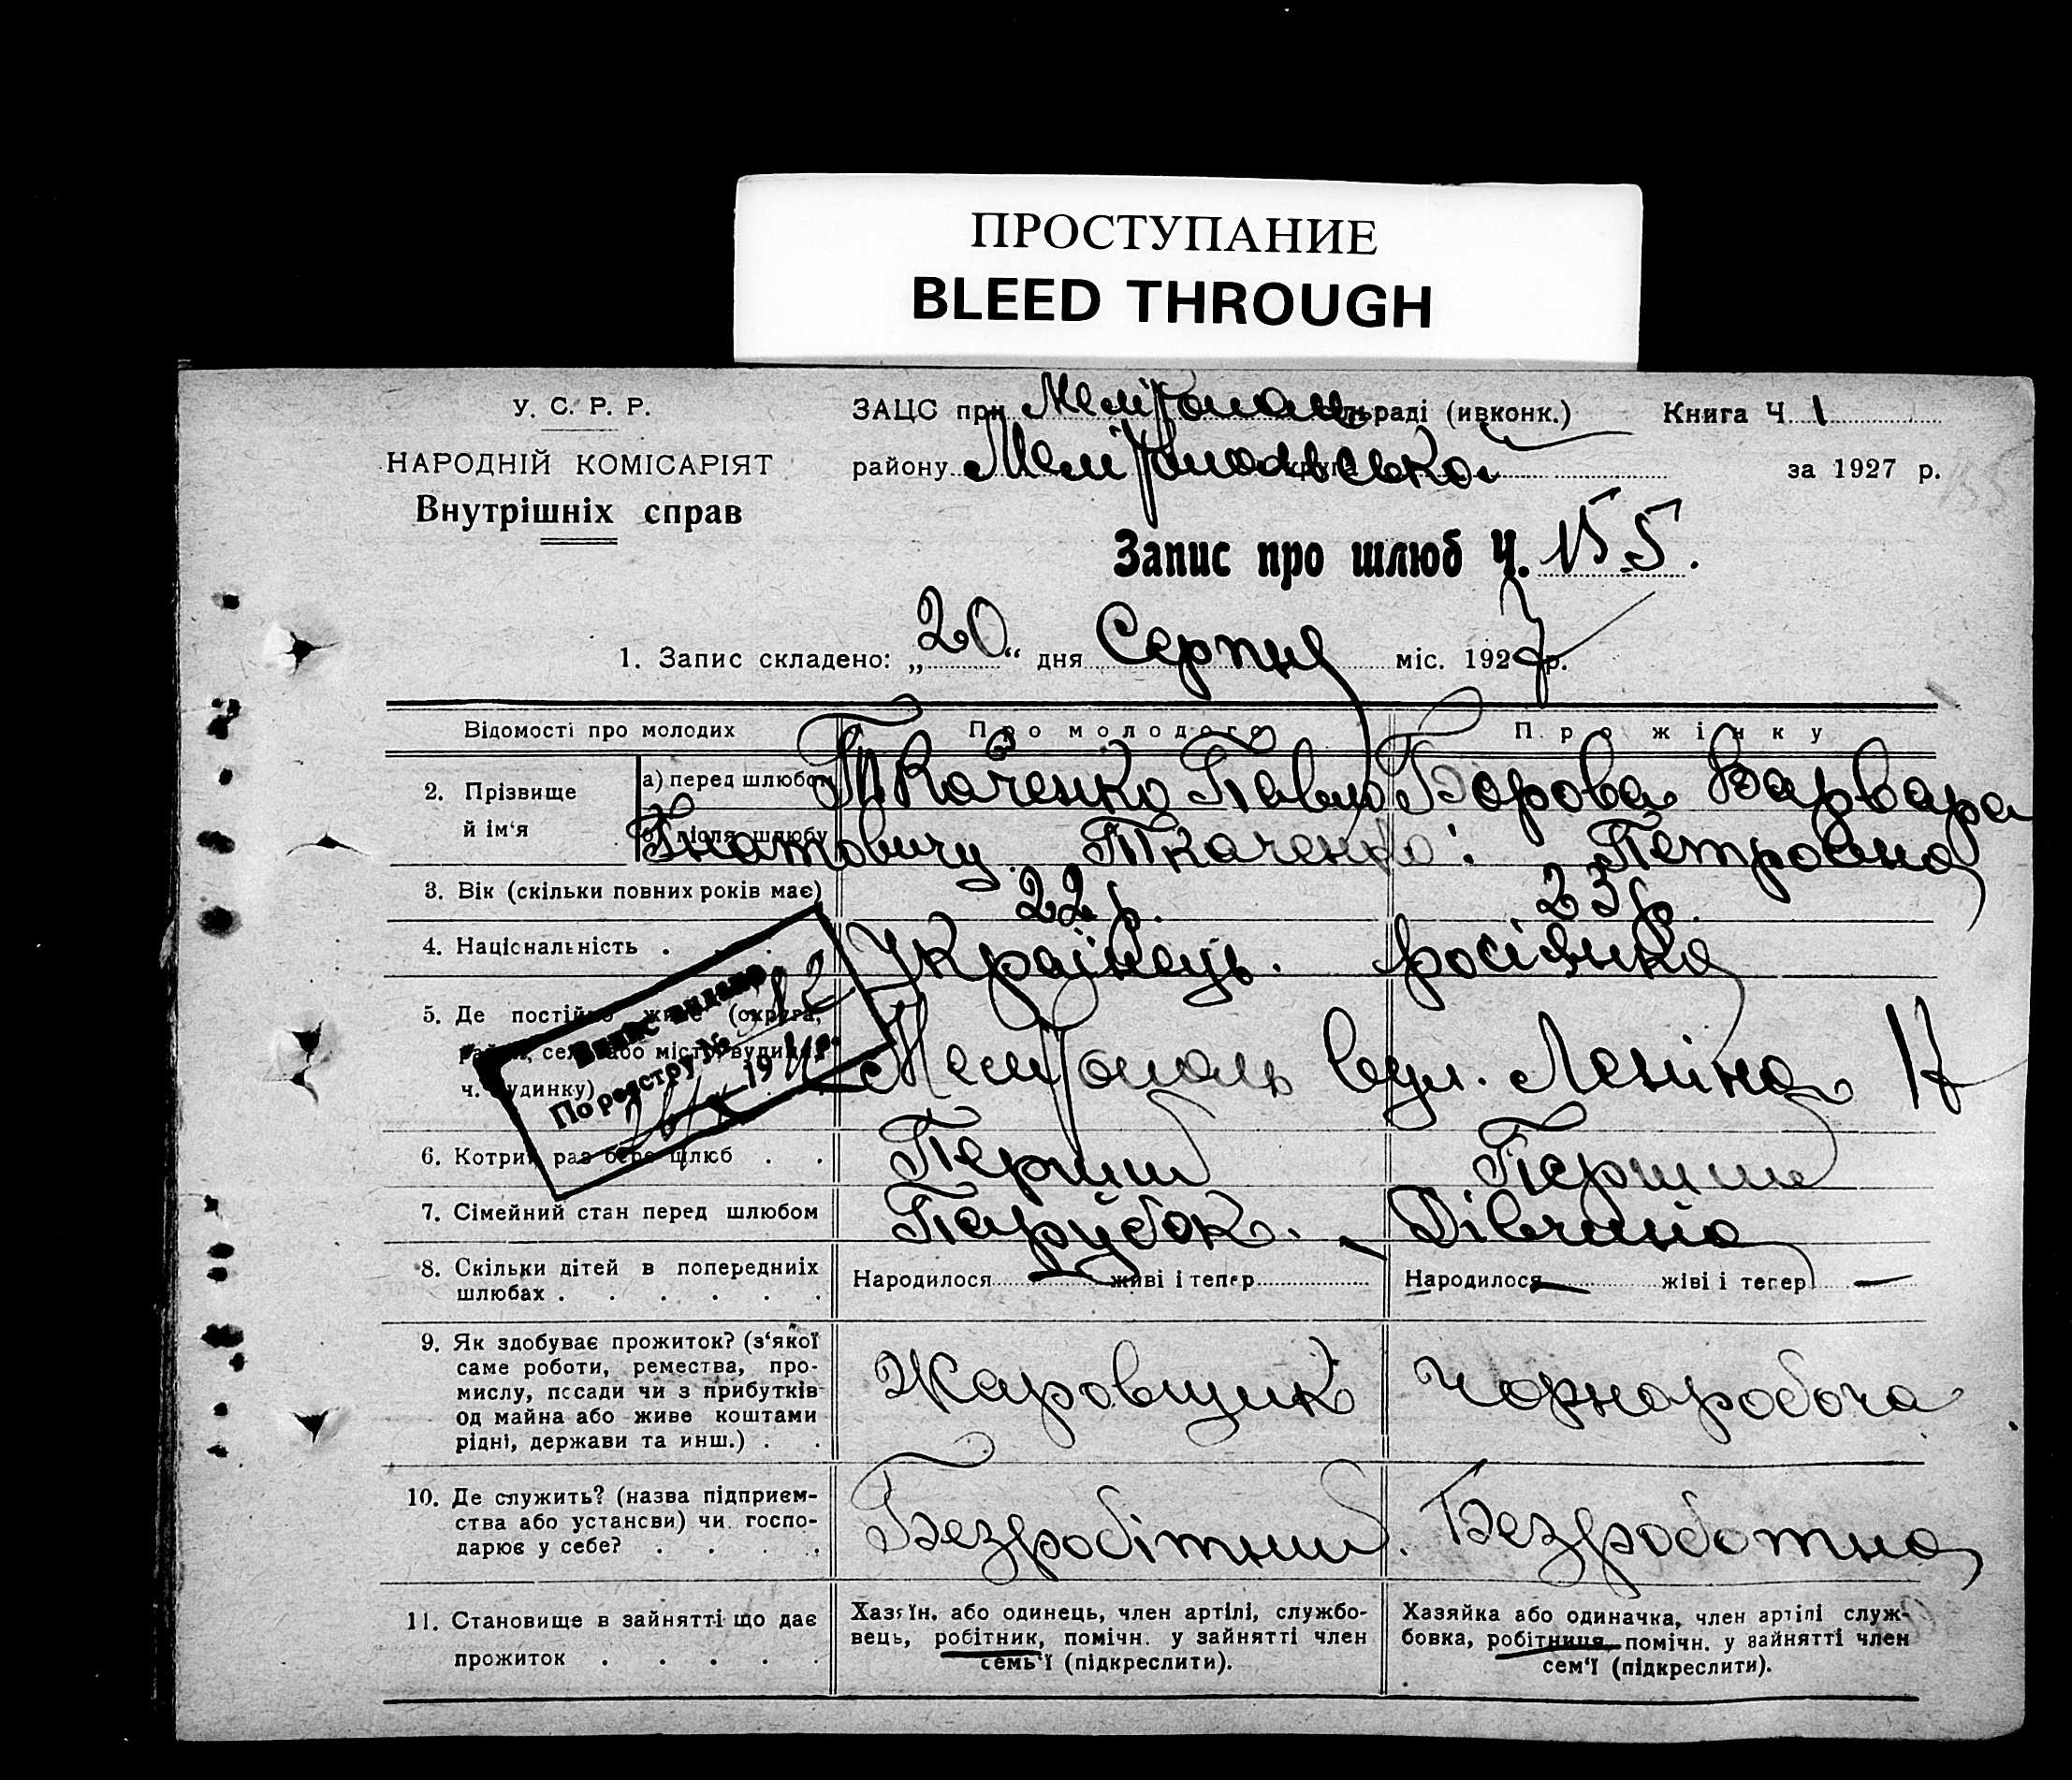 ПРОСТУПАНИЕ
BLEED THROUGH
У. С. Р. Р.
НАРОДНІЙ КОМІСАРІЯТ
Внутрішніх справ
ЗАЦС при раді (ивконк.)
Книга Ч. 1
району
за 1927 р.
Запис про шлюб Ч. 155.
1. Запис складено: „20“ дня Серпня міс. 1927 р.
Відомості про молодих
Про молодого
Про жінку
2. Прізвище й ім‘я
а) перед шлюбом
Ткаченко Павло
Борова Варвара
б) після шлюбу
Гнатовичу Ткаченко:
Петровна
3. Вік (скільки повних років має)
22 р.
23 р.
4. Національність
Українець.
росіянка
5. Де постійно живе (округа,
район, село або місто, вулиця,
ч. будинку)
Мелітополь вул. Леніна 17
Випис видано
По реєстру №
19
6. Котрий раз бере шлюб
Перший
Перший
7. Сімейний стан перед шлюбом
Парубок.
Дівчина
8. Скільки дітей в попередніх
шлюбах
Народилося живі і тепер
Народилося жіві і тепер
9. Як здобуває прожиток? (з‘якої
саме роботи, ремества, про-
мислу, посади чи з прибутків
од майна або живе коштами
рідні, держави та инш.)
Жаровщик
Чорноробоча
10. Де служить? (назва підприєм-
ства або устансви) чи госпо-
дарює у себе?
Безробітний.
Безработна
11. Становище в зайнятті що дає
прожиток
Хазяїн, або одинець, член артілі, службо-
вець, робітник, помічн. у зайнятті член
семь‘ї (підкреслити).
Хазяйка або одиначка, член артілі служ-
бовка, робітниця, помічн. у зайнятті член
сем‘ї (підкреслити).